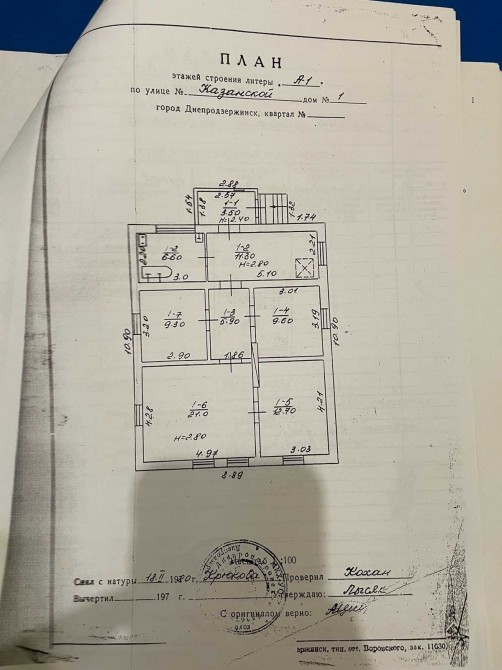 ПЛАН
этажей строения литеры „А-1“
по улице № Казанской дом № 1
город Днепродзержинск, квартал №
2.88
2.57
1-1
3.50
H=2.40
1.54
1.38
1.32
1.74
1-2
6.60
3.0
1-2
11.50
H=2.80
5.10
2.21
3.01
1-7
9.30
3.20
2.90
1-3
5.90
1.86
1-4
9.60
3.19
10.90
10.90
1-6
21.0
H=2.80
4.28
4.97
1-5
12.70
4.21
3.03
8.89
:100
Снял с натуры 13.II 1980 г. Крюкова Проверил Кохан
Вычертил 197 г. Утверждаю:
С оригиналом верно:
зержинск, тип. пот. Воровского, зак. 11630